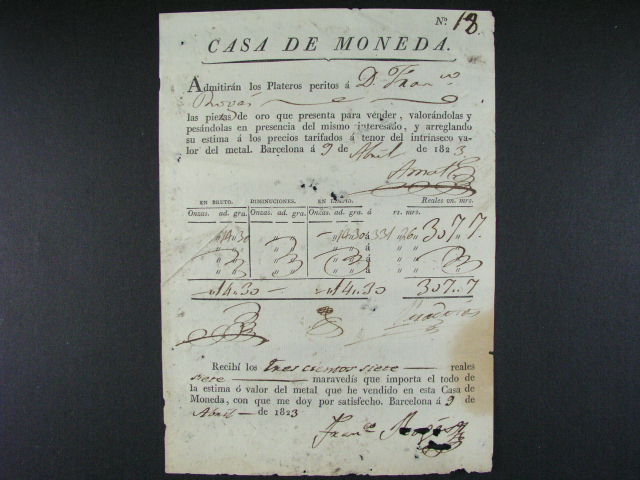 Nº 18.
CASA DE MONEDA.
Admitirán los Plateros peritos á D. Fran.co
las piezas de oro que presenta para vender, valorándolas y
pesándolas en presencia del mismo interesado, y arreglando
su estima á los precios tarifados á tenor del intrínseco va-
lor del metal. Barcelona á 9 de Abril de 1823
EN BRUTO. DIMINUCIONES. EN LIMPIO. Reales en. mrs.
Onzas. ad. gra. Onzas. ad. gra. Onzas. ad. gra. á rs. mrs.
14 30 14 30 á 331 26 307 7
á
á
á
14 30 14 30 307 7
Recibí los trescientos siete reales
siete maravedís que importa el todo de
la estima ó valor del metal que he vendido en esta Casa de
Moneda, con que me doy por satisfecho. Barcelona á 9 de
Abril de 1823
Fran.co